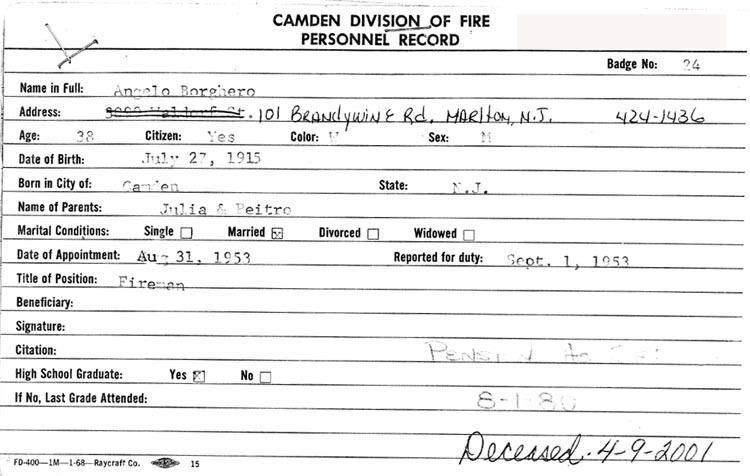 CAMDEN DIVISION OF FIRE
PERSONNEL RECORD
Badge No: 24
Name in Full: Angelo Borghero
Address: 101 BRANDYWINE Rd. MARLTON, N.J. 424-1436
Age: 38 Citizen: Yes Color: W Sex: M
Date of Birth: July 27, 1915
Born in City of: Camden State: N.J.
Name of Parents: Julia & Peitro
Marital Conditions: Single ☐ Married ☒ Divorced ☐ Widowed ☐
Date of Appointment: Aug 31, 1953 Reported for duty: Sept. 1, 1953
Title of Position: Fireman
Beneficiary:
Signature:
Citation: PENSION
High School Graduate: Yes ☒ No ☐
If No, Last Grade Attended: 8-1-80
Deceased. 4-9-2001
FD-400—1M—1-68—Raycraft Co. 15